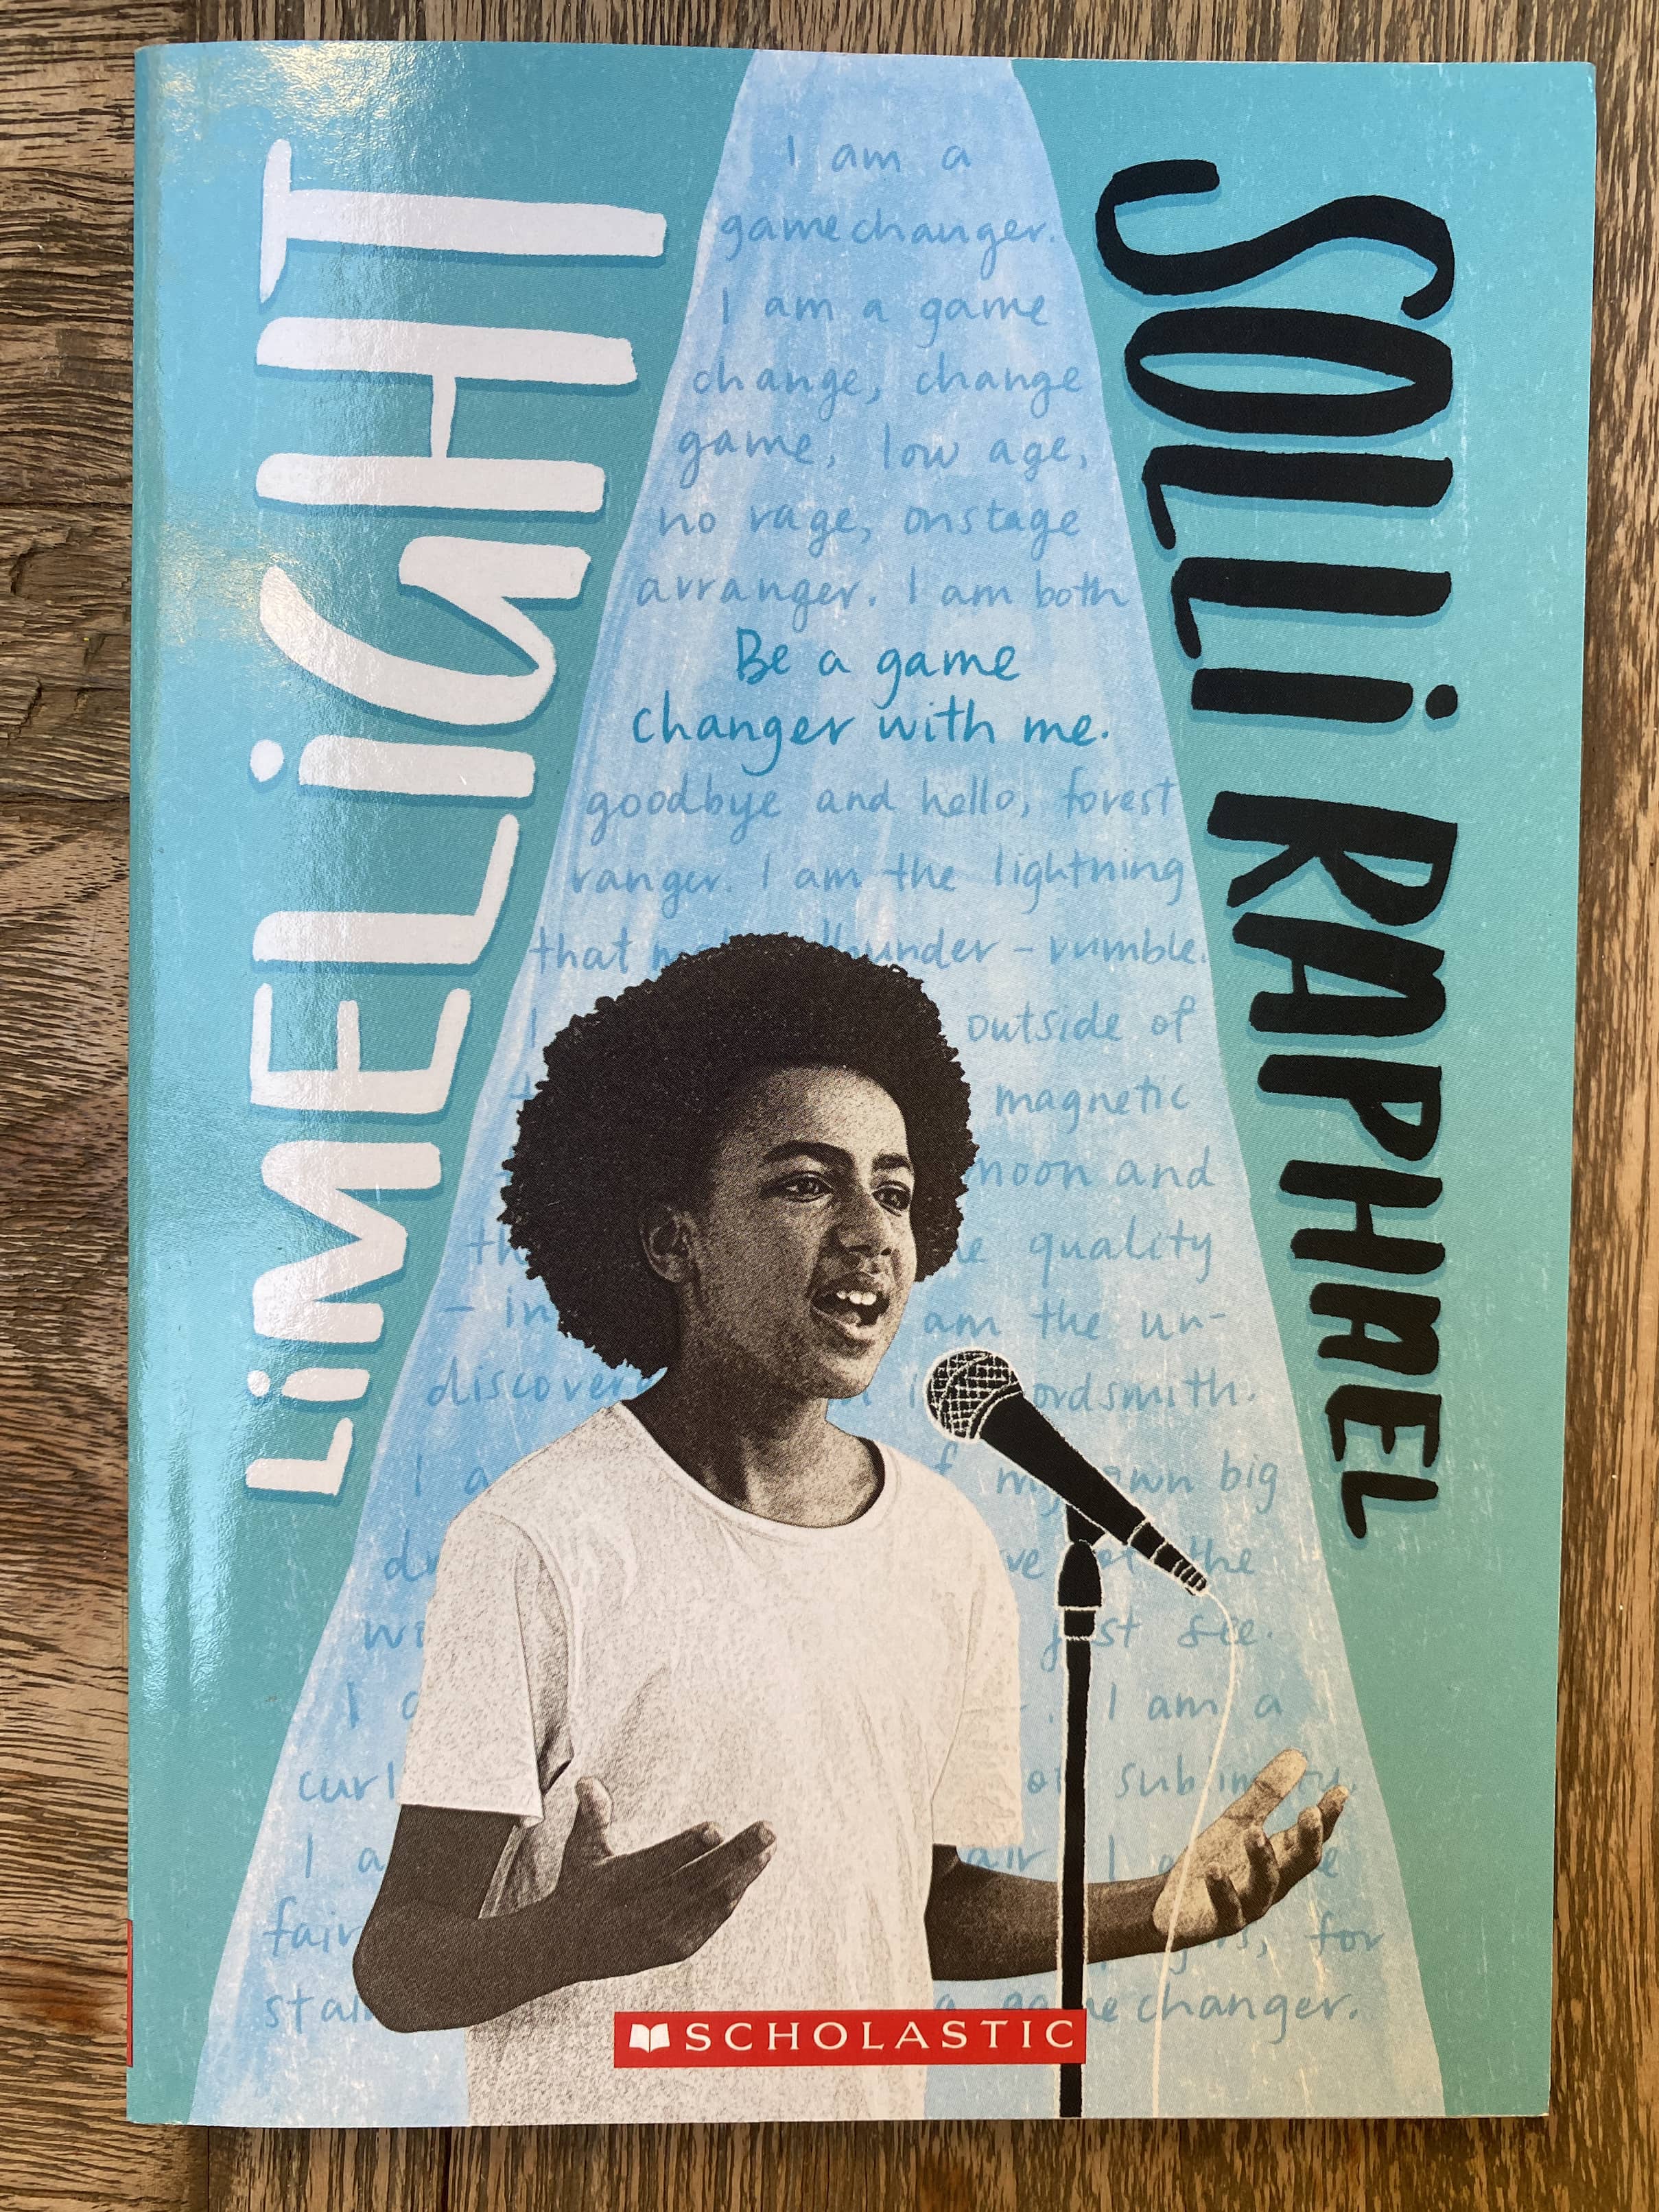 LiMELiGHT
SOLLi RAPHAEL
I am a
gamechanger.
I am a game
change, change
game, low age,
no rage, onstage
arranger. I am both
Be a game
changer with me.
goodbye and hello, forest
ranger. I am the lightning
that thunder – rumble.
I outside of
magnetic
moon and
quality
– in am the un-
wordsmith.
I my own big
the
just see.
I I am a
curl of
I air I
fair for
a gamechanger.
SCHOLASTIC